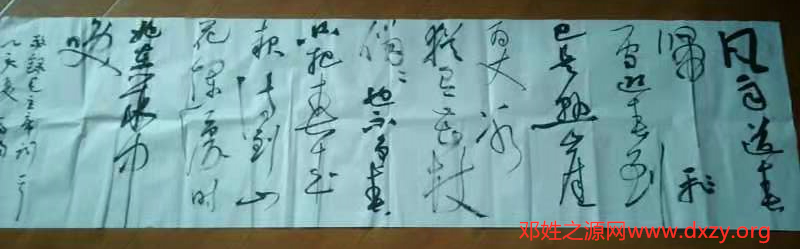 风雨送春
归 飛
雪迎春到
已是悬崖
百丈冰
犹有花枝
俏〻也不争春
只把春来
报待到山
花烂漫时
她在丛中
笑
毛主席词一首
邓姓之源网www.dxzy.org